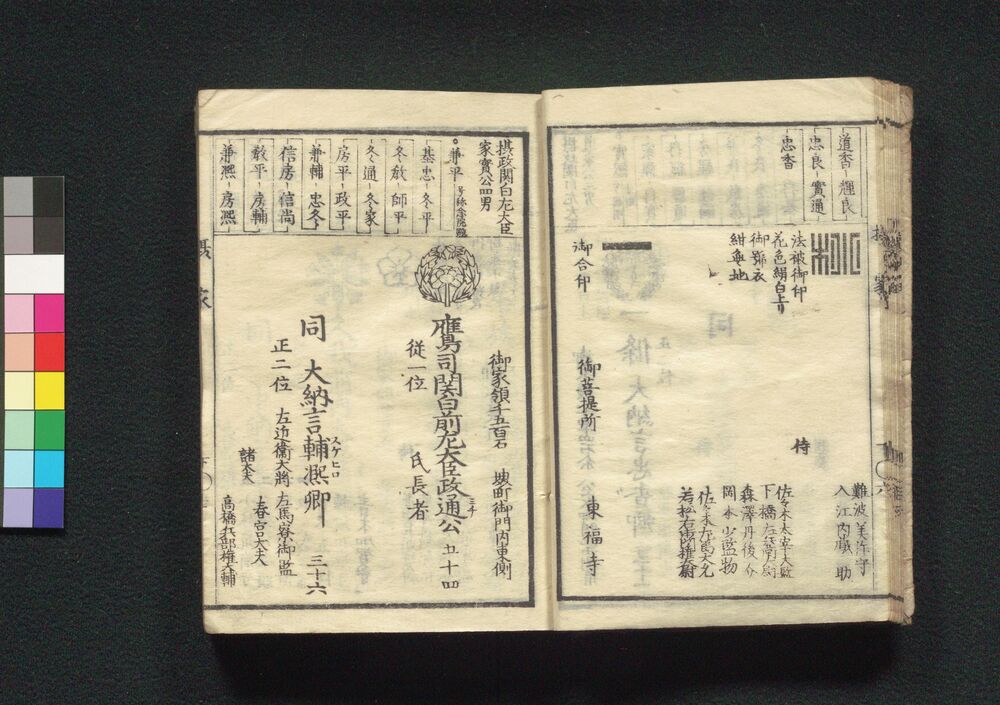 道香 輝良
忠良 實通
忠香
法被御印
花色絹白上り
御第衣
紺無地
御合印
御菩提所
東福寺
侍
難波美作守
入江内蔵助
佐々木太宰大監
下橋左兵衛尉
森澤丹後介
岡本少監物
佐々木右馬大允
若松右衛門権大尉
摂家
摂政関白左大臣
家實公四男
兼平 号称念院殿
基忠 冬平
冬教 師平
冬通 冬家
房平 政平
兼輔 忠冬
信房 信尚
教平 房輔
兼熙 房熙
御家領千五百石
堺町御門内東側
鷹司関白前左大臣政通公 五十四
従一位
氏長者
同 大納言輔熙卿 三十六
スケヒロ
正二位
左近衛大将
左馬寮御監
春宮大夫
諸大夫
高橋兵部権大輔